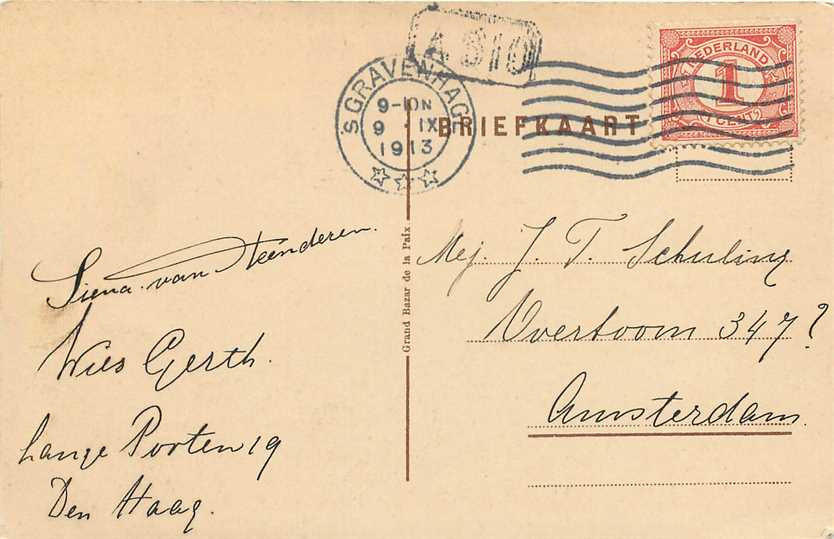 A 810
'SGRAVENHAGE
9-10N
9 IX
1913
NEDERLAND
1
1 CENT
BRIEFKAART
Siena van Steenderen.
Wies Gerth.
Lange Poten 19
Den Haag.
Grand Bazar de la Paix
Mej. J. T. Schuling
Overtoom 347?
Amsterdam